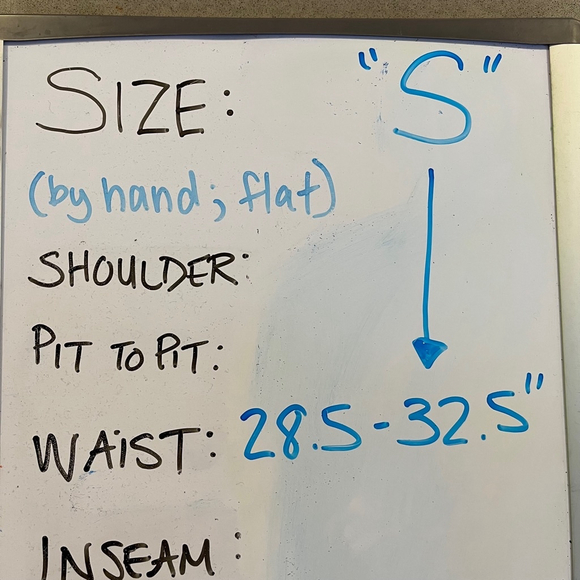 SIZE: "S"
(by hand; flat)
SHOULDER:
PIT TO PIT:
WAIST: 28.5-32.5"
INSEAM: